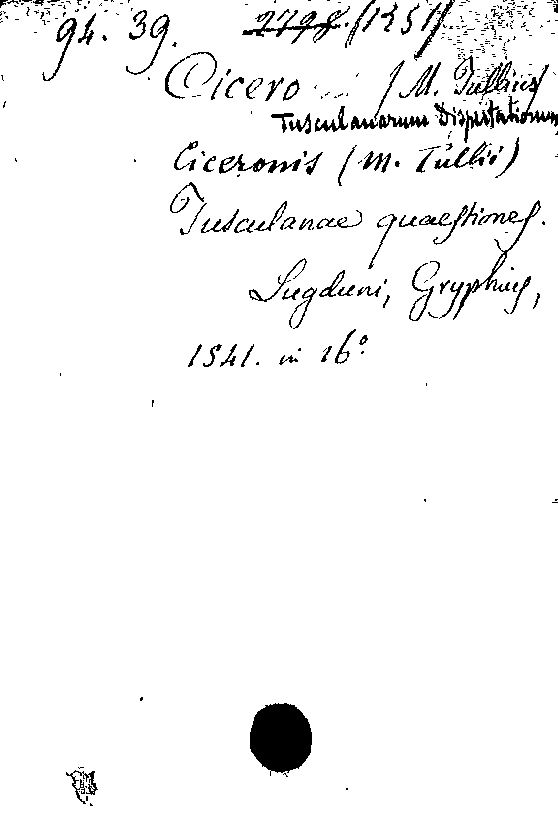 94. 39. 2798. (1251)
Cicero (M. Tullius)
Tusculanarum Disputationum
Ciceronis (M. Tullii)
Tusculanae quaestiones.
Lugduni, Gryphius,
1541. in 16º